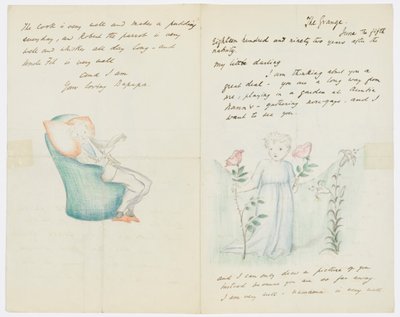 The Grange.
June the fifth
Eighteen hundred and ninety two years after the
nativity.
My little darling
I am thinking about you a
great deal - you are a long way from
me: playing in a garden at Auntie
- gathering nosegays. and I
want to see you.
and I can only draw a picture of you
instead because you are so far away
I am very well - Mamama is very well
The cook is very well and makes a pudding
everyday, and Robert the parrot is very
well and whistles all day long - and
Uncle Phil is very well
and I am
Your loving Bapapa.